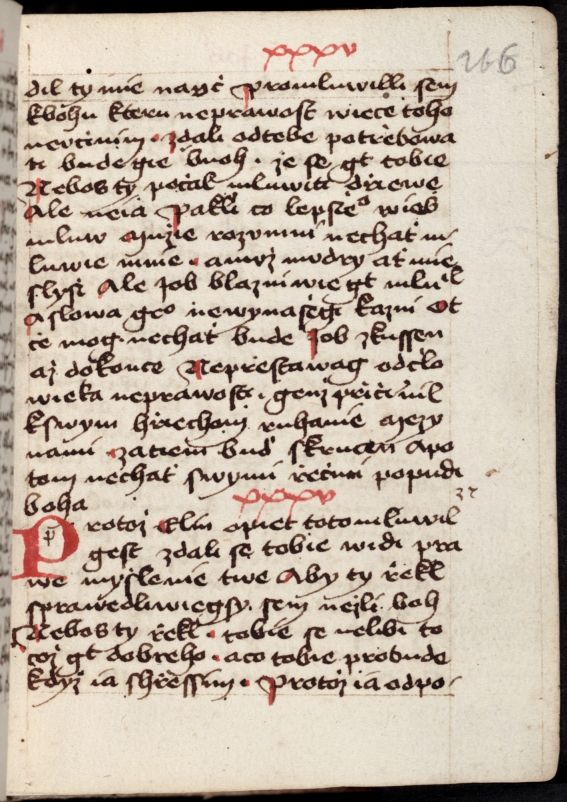 xxxv
266
dil ty mie nawč Promluwilli sem
k bohu kteru neprawost wiece toho
nevcinim. zdali od tebe potrzebowa
ti bude gie buoh. ze se gt tobie
Nebos ty pocal mluwiti drziewe
Ale neia Pakli co lepsieᵒ wieš
mluw muzie rozumni nechat mi
luwie mnie. a muz mudry at mie
slysi Ale Job blazniwie gt mluᶦˡ
A slowa geᵒ newynasiegi kazni Ot
cze mog. nechat bude Job zkussen
az dokonce Neprzestawag od czlo
wieka neprawosti. genz przicinil
k swym hrziechom ruhanie mezy
nami zatiem bud skrucen Apo
tom nechat swymi rzecmi popudi
boha
xxxv
Protoz Elin opiet toto mluwil
gest zdali se tobie widi pra
we myslenie twe Aby ty rzekl
sprawedliwiegsy sem nezli boh
Nebos ty rzekl. tobie se nelibi to
coz gt dobreho. a co tobie probude
kdyz ia shrzessim. Protoz ia odpo-